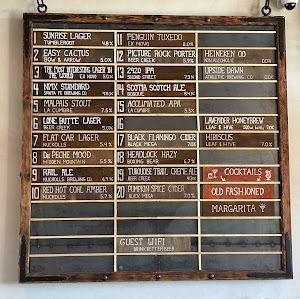 1 SUNRISE LAGER
TUMBLEROOT 4.8%
2 EASY CACTUS
BOW & ARROW 5.0%
3 THE MOST INTERESTING LAGER IN
THE WORLD EX NOVO 5.0%
4 XMX STANDARD
SANTA FE BREWING CO
5 MALPAIS STOUT
LA CUMBRE 7.5%
6 LONE BUTTE LAGER
BEER CREEK 5.0%
7 FLAT CAR LAGER
NUCKOLLS 5.4%
8 DE PÊCHE MOOD
HIDDEN MOUNTAIN 5.5%
9 RAIL ALE
NUCKOLLS BREWING CO.
10 RED HOT COAL AMBER
NUCKOLLS 5.7%
11 PENGUIN TUXEDO
EX NOVO 8.0%
12 PICTURE ROCK PORTER
BEER CREEK 5.9%
13 2920 IPA
SECOND STREET 7.3%
14 SCOTIA SCOTCH ALE
ROGUE
15 ACCLIMATED APA
LA CUMBRE 5.5%
16
17 BLACK FLAMINGO CIDER
BLACK MESA 7.0%
18 HEADLOCK HAZY
BOXING BEAR
19 TURQUOISE TRAIL CREME ALE
BEER CREEK
20 PUMPKIN SPICE CIDER
BLACK MESA
HEINEKEN 00
NON ALCOHOLIC 0.0%
UPSIDE DAWN
ATHLETIC BREWING CO
LAVENDER HONEYBREW
LEAF & HIVE
HIBISCUS
LEAF & HIVE 7.0%
COCKTAILS
OLD FASHIONED
MARGARITA
GUEST WIFI
DRINKBETTERBEER